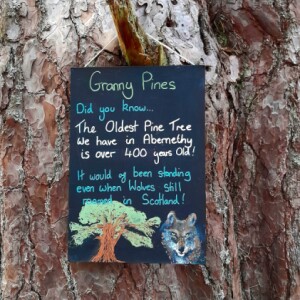 Granny Pines
Did you know...
The Oldest Pine Tree
We have in Abernethy
is over 400 years Old!
It would of been standing
even when Wolves still
roamed in Scotland!